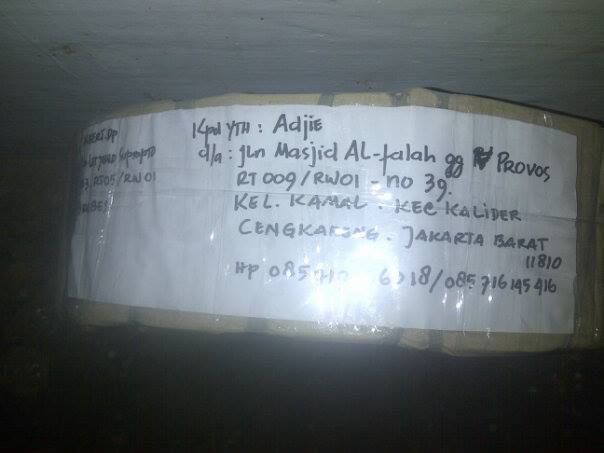 BERT.DP
RT05/RW01
Kpd YTH : Adjie
d/a : jln Masjid AL-falah gg PROVOS
RT 009/RW01 - no 39.
KEL. KAMAL . KEC KALIDER
CENGKARENG . JAKARTA BARAT
11810
Hp 085 6018/085716145416